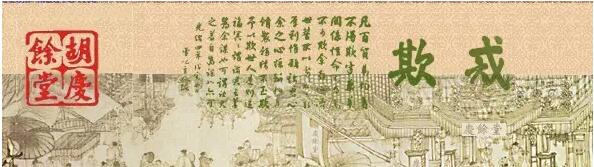 戒欺
凡百貿易均著
不得欺字藥業
關係性命尤為萬
不可欺余存心濟
世誓不以劣品弋取
厚利惟願諸君心
余之心
予以欺世人是則造
福冥冥謂諸君之善
為余謀也可謂諸君
之善自為謀也亦可
光緒四年
胡慶
餘堂
慶餘堂